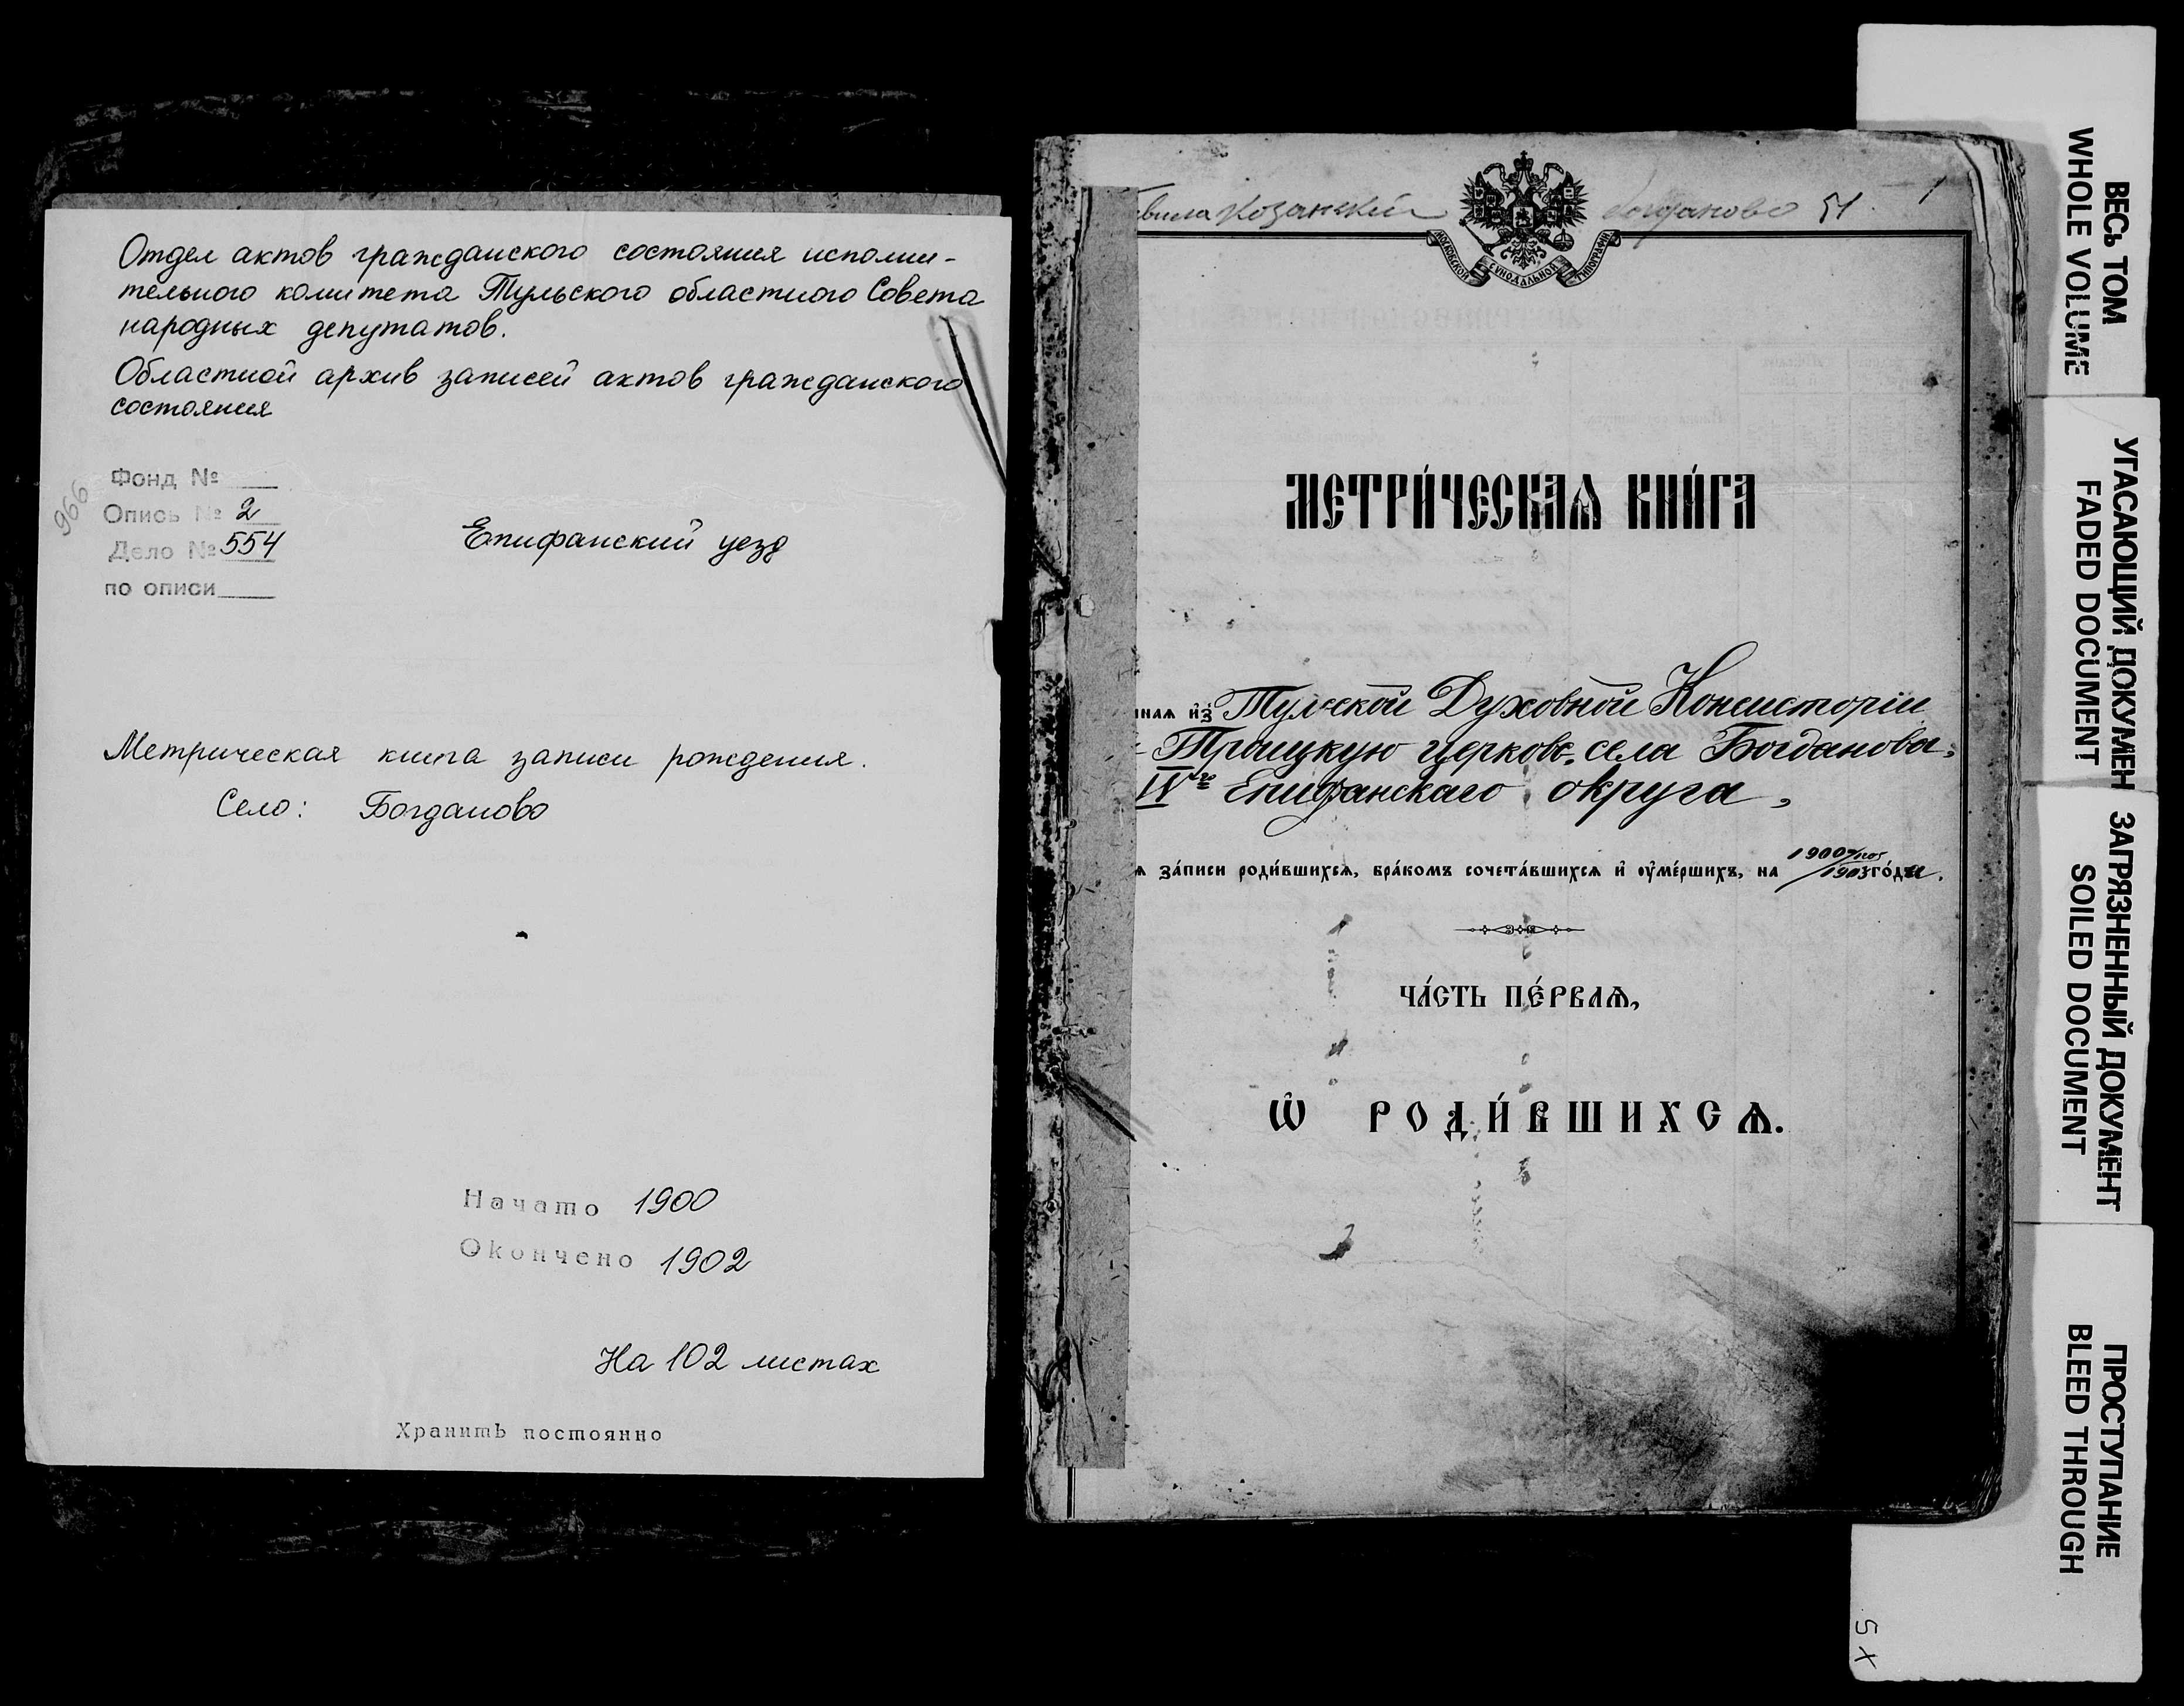 Отдел актов гражданского состояния исполни-
тельного комитета Тульского областного Совета
народных депутатов.
Областной архив записей актов гражданского
состояния
966
Фонд №
Опись № 2
Дело № 554
по описи
Епифанский уезд
Метрическая книга записи рождения.
Село: Богданово
Начато 1900
Окончено 1902
На 102 листах
Хранить постоянно
Козанский Богданово 51 1
МОСКОВСКОЙ СУНОДАЛЬНОЙ ТИПОГРАФІИ
МЕТРИ́ЧЕСКАѦ КНИ́ГА
ннаѧ и҆з̾ Тульской Духовной Консисторіи
Троицкую церковь села Богданова,
IVго Епифанскаго округа,
ѧ за́писи роди́вшихсѧ, бра́комъ сочета́вшихсѧ и҆ ᲂу҆ме́ршихъ, на 1900/1903 го́да.
ЧА́СТЬ ПЕ́РВАѦ,
Ѽ РОДИ́ВШИХСѦ.
ВЕСЬ ТОМ
WHOLE VOLUME
УГАСАЮЩИЙ ДОКУМЕН
FADED DOCUMENT
ЗАГРЯЗНЕННЫЙ ДОКУМЕНТ
SOILED DOCUMENT
ПРОСТУПАНИЕ
BLEED THROUGH
5X